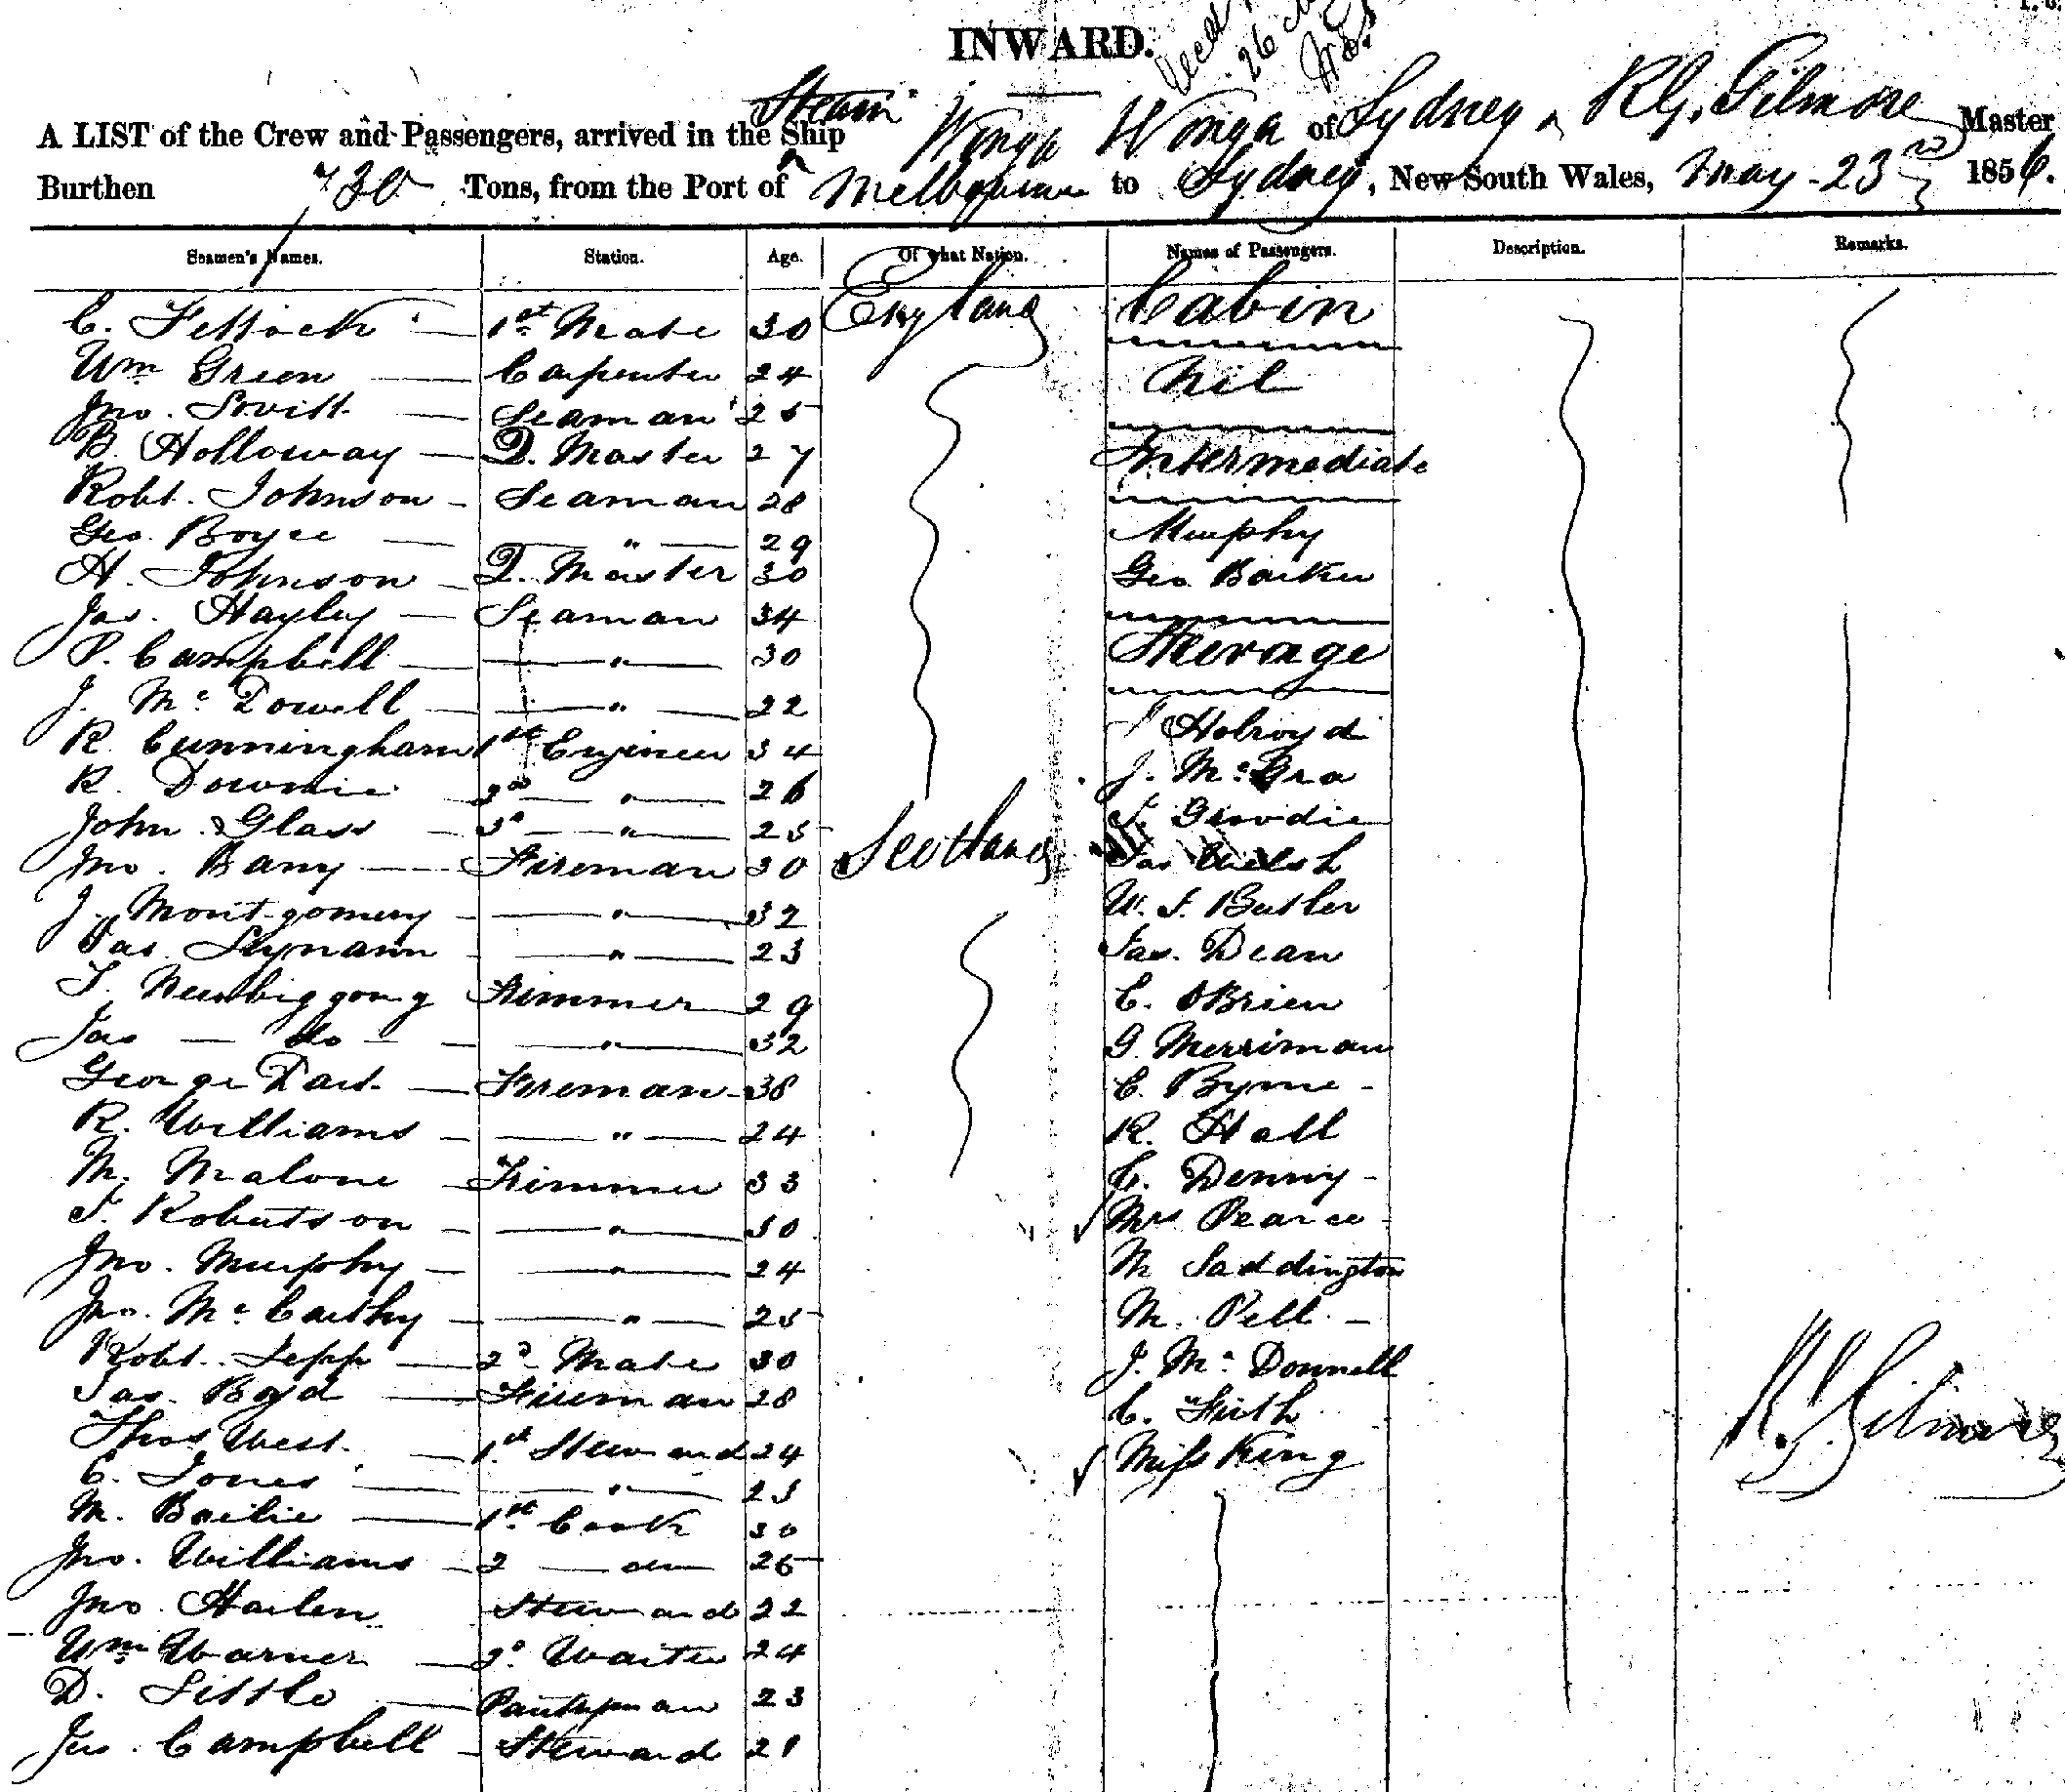 INWARD.
A LIST of the Crew and Passengers, arrived in the Steam Ship Wonga Wonga of Sydney, R G. Gilmore Master
Burthen 730 Tons, from the Port of Melbourne to Sydney, New South Wales, May 23rd 1856.
Seamen's Names. Station. Age. Of what Nation. Names of Passengers. Description. Remarks.
C. 1st Mate 30 England Cabin
Wm Green Carpenter 24 Nil
Jno. Seaman 25
B. Holloway Q. Master 27 Intermediate
Robt. Johnson Seaman 28
Geo. Boyce " 29 Murphy
H. Johnson Q. Master 30 Geo Barker
Jas. Hayley Seaman 34
P. Campbell " 30 Steerage
J. Mc Dowell " 22
R. Cunningham 1st Engineer 34 Holroyd
R. Downie 2nd " 26 J. Mc Gra
John Glass 3d " 25 Brodie
Jno. Barry Fireman 30 Scotland Jas Welsh
J. Montgomery " 32 W. J. Butler
Jas. " 23 Jas. Dean
T. Newbiggong Trimmer 29 C. OBrien
Jas do " 32 G. Merriman
George Dart Fireman 38 C. Byrne
R. Williams " 24 R. Hall
M. Malone Trimmer 33 C. Denny
T. Robertson " 30 Mrs Pearce
Jno. Murphy " 24 M Saddington
Jno. Mc Carthy " 25 M. Pell
Robt. Jepp 2d Mate 30 J. Mc Donnell
Jas. Boyd Fireman 28 C. Firth
Thos West 1st Steward 24 Miss King
C. Jones " 23
M. Bailie 1st Cook 30
Jno. Williams 2 do 26
Jno. Harlen Steward 22
Wm Warner 2d Waiter 24
D. Little Pantryman 23
Jas. Campbell Steward 21
R. G. Gilmore